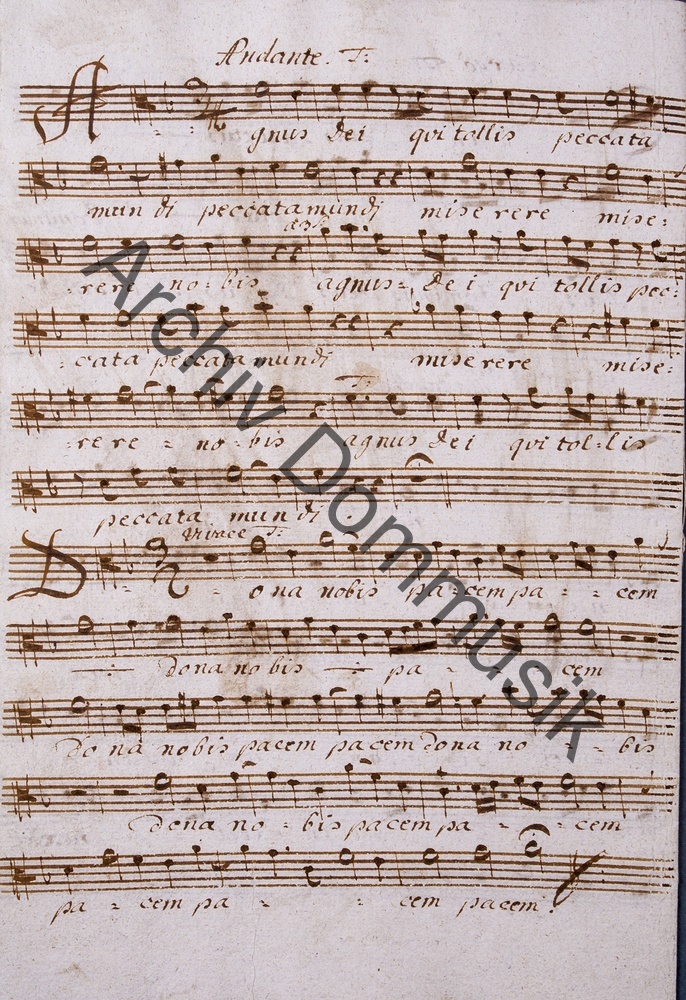 Andante. T:
A - - gnus Dei qvi tollis peccata
mun di peccata mundi mise rere mise:
:rere no = bis agnus = De i qvi tollis pec=
=cata peccata mundi mise rere mise:
T:
:re re = no = bis agnus Dei qvi tol=lis
peccata mun di
Vivace T:
D = = ona nobis pa=cem pa = = cem
dona no bis pa = = cem
Do na nobis pacem pacem dona no = = bis
dona no = bis pacem pa = = cem
pa = cem pa = = cem pacem.
Archiv Dommusik